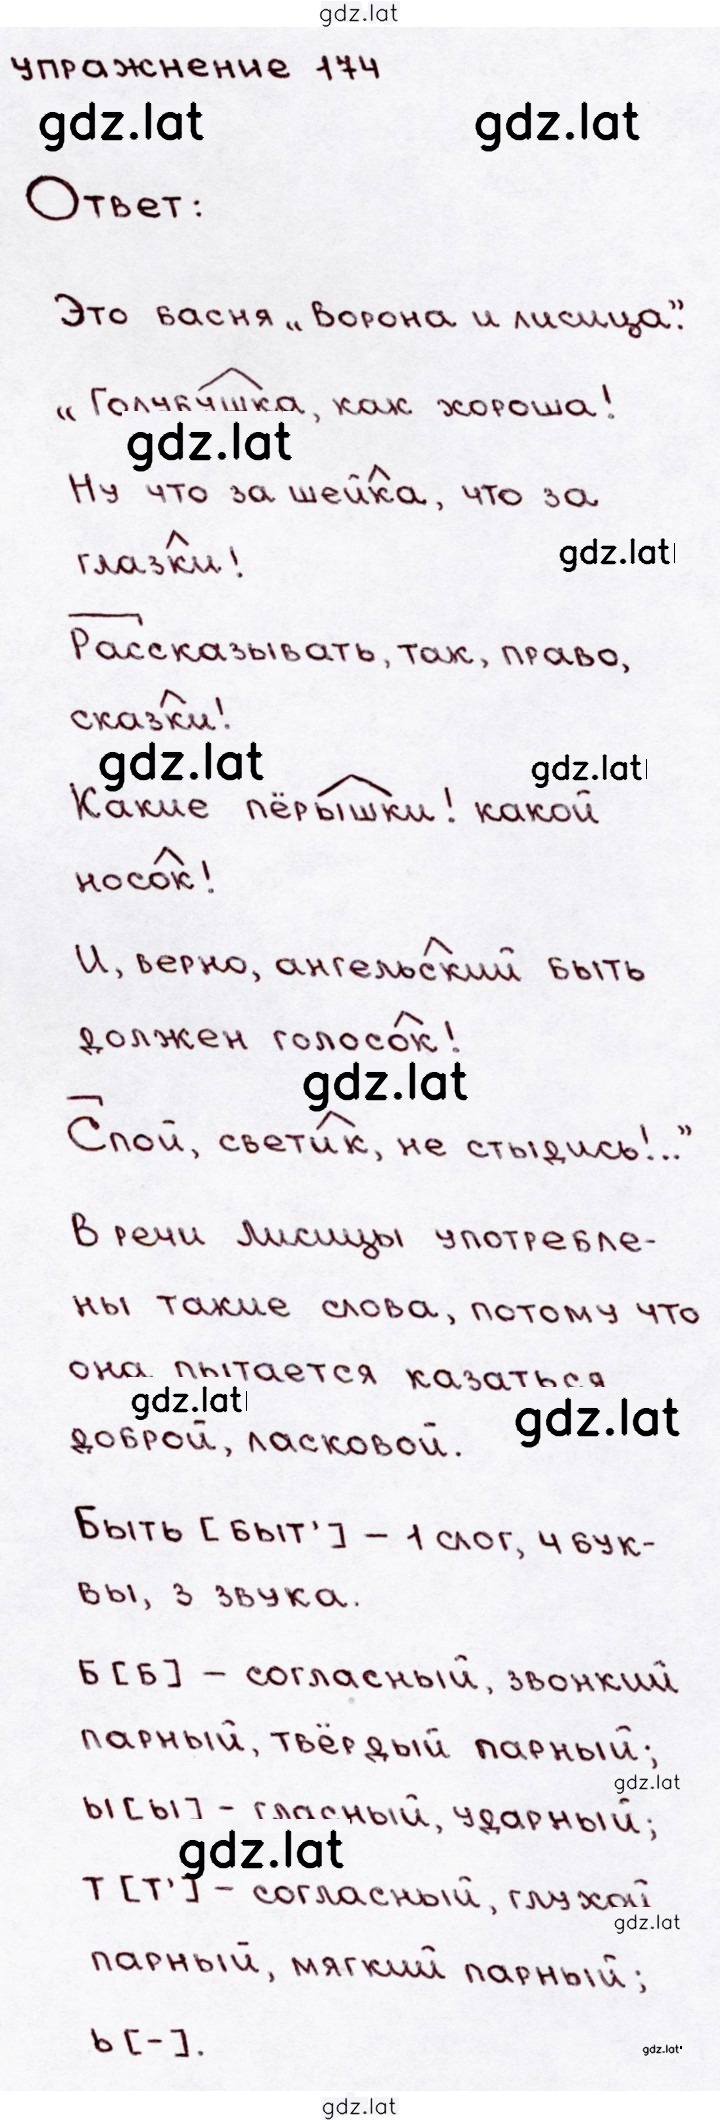 gdz.lat
упражнение 174
gdz.lat gdz.lat
Ответ:
Это басня „Ворона и лисица”.
„Голубушка, как хороша!
gdz.lat
Ну что за шейка, что за
gdz.lat
глазки!
Рассказывать, так, право,
сказки!
gdz.lat gdz.lat
Какие пёрышки! какой
носок!
И, верно, ангельский быть
должен голосок!
gdz.lat
Спой, светик, не стыдись!..”
В речи Лисицы употребле-
ны такие слова, потому что
она пытается казаться
gdz.lat gdz.lat
доброй, ласковой.
Быть [быт'] – 1 слог, 4 бук-
вы, 3 звука.
Б [б] – согласный, звонкий
парный, твёрдый парный;
gdz.lat
ы [ы] – гласный, ударный;
gdz.lat
т [т'] – согласный, глухой
gdz.lat
парный, мягкий парный;
ь [-].
gdz.lat
gdz.lat